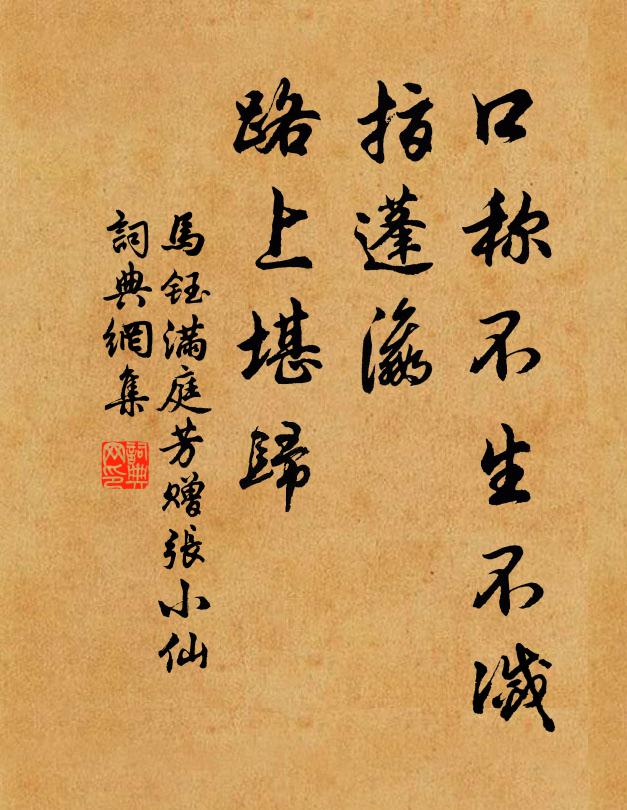 口称不生不滅
指蓬瀛
路上堪歸
馬鈺滿庭芳贈張小仙
詞典網集
詞典
网印